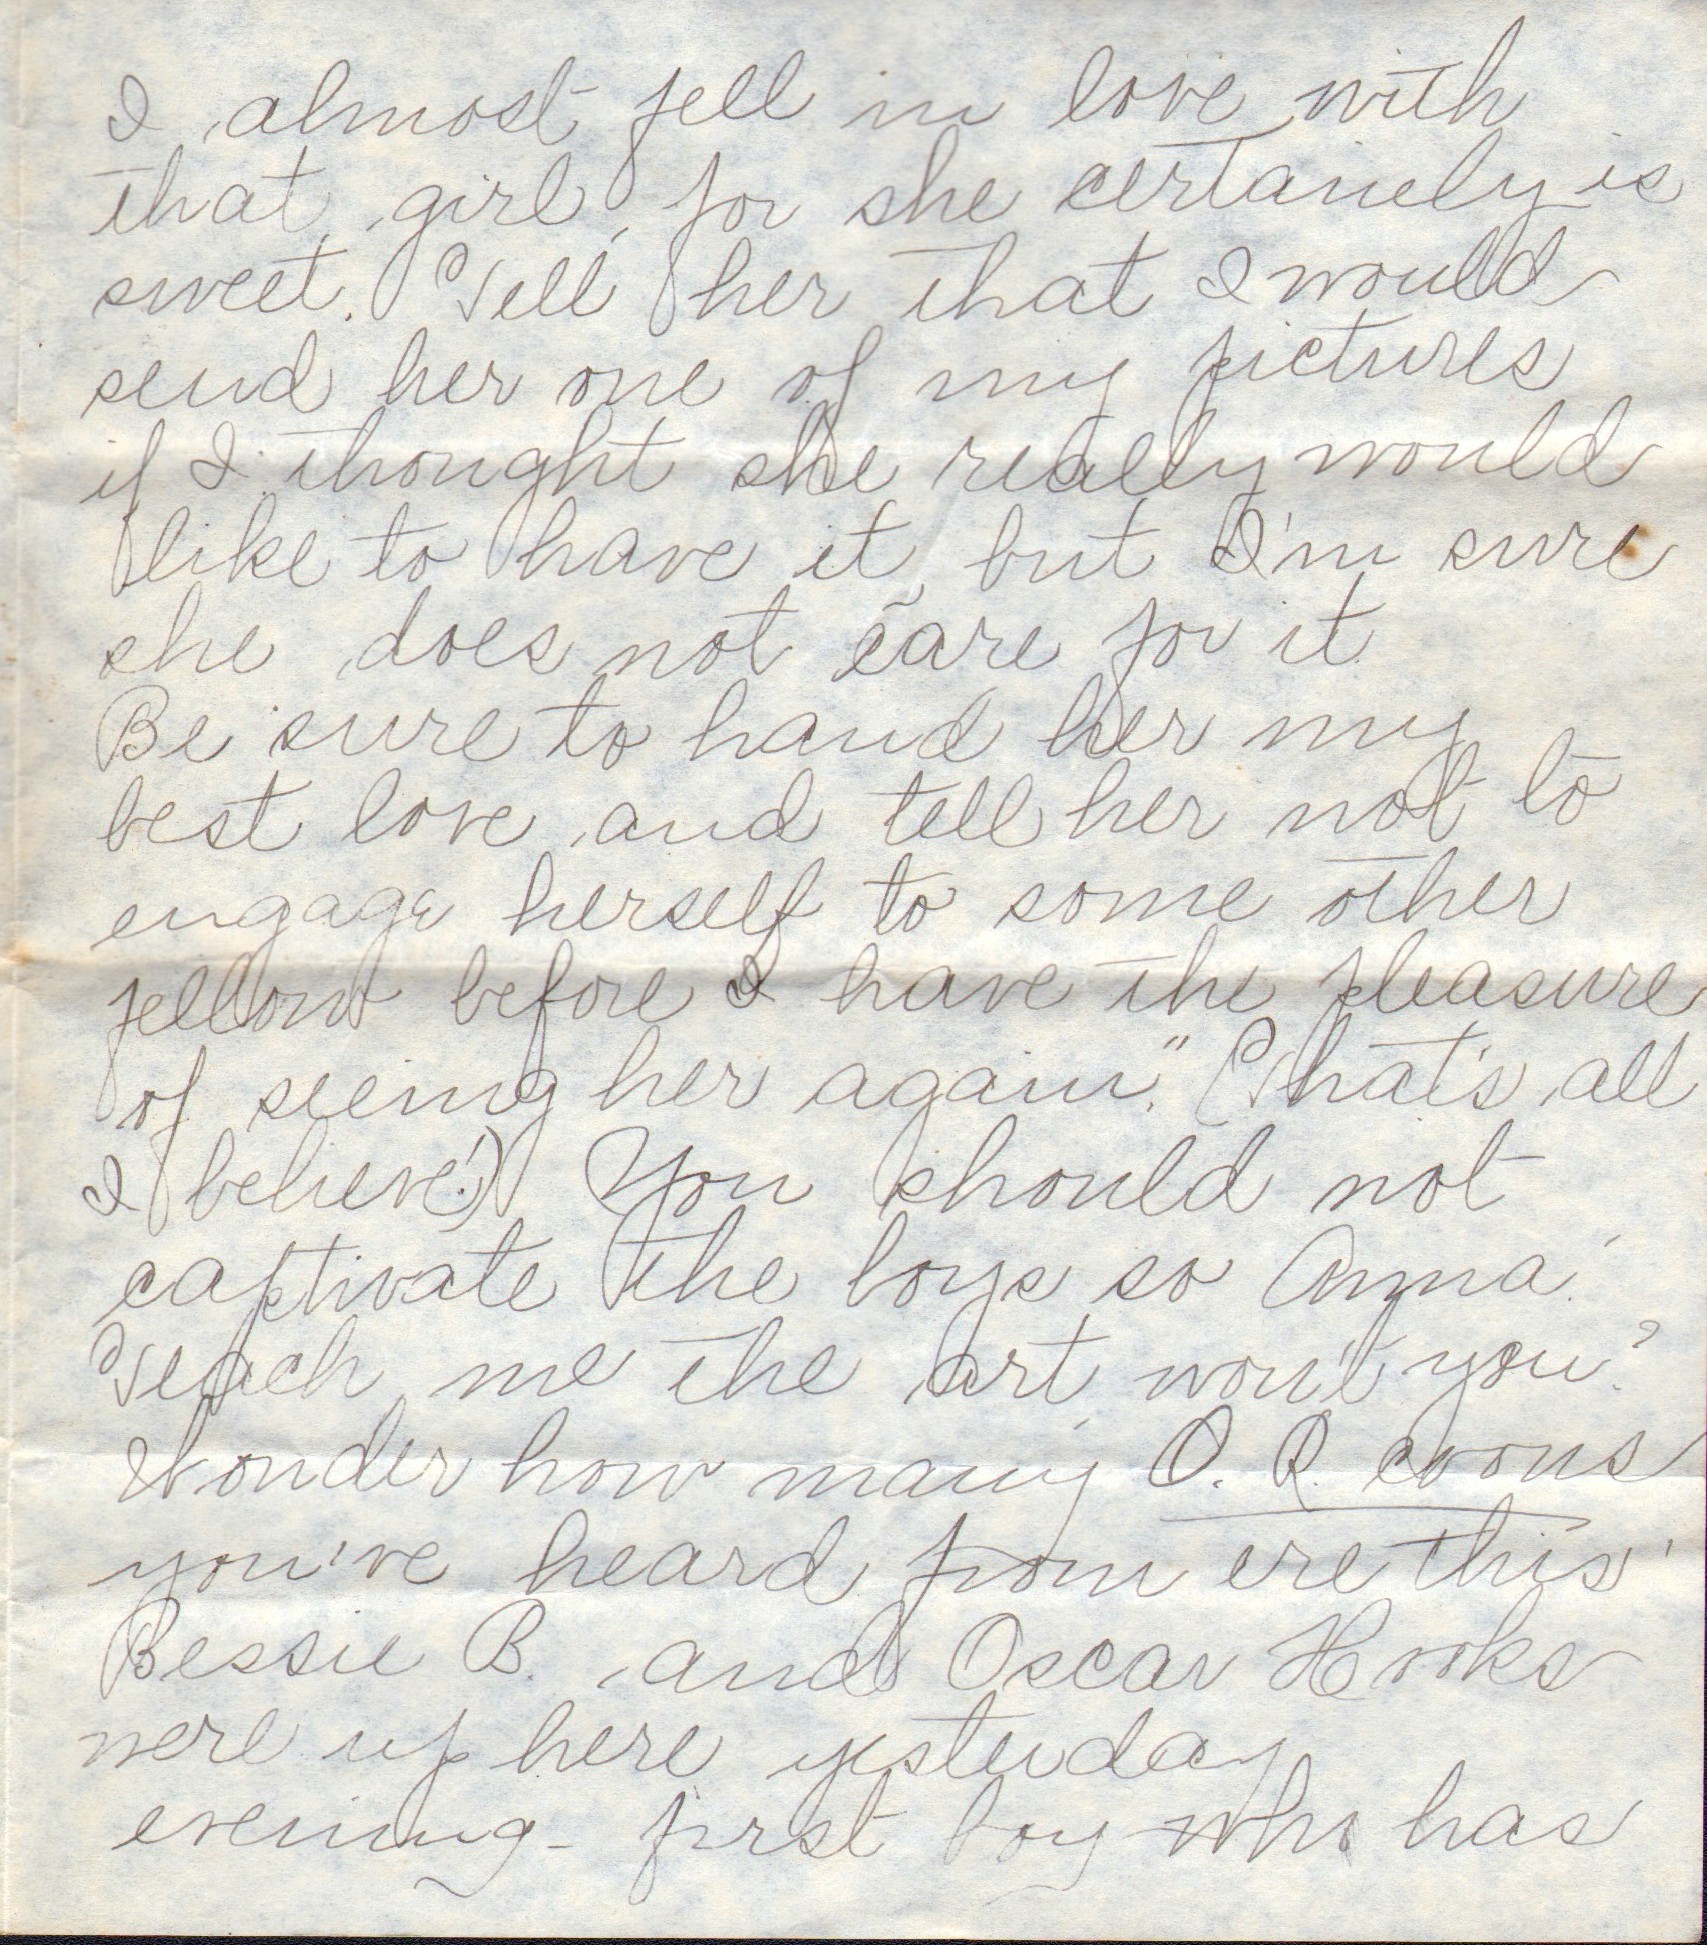 I almost fell in love with
that girl, for she certainely is
sweet. Tell her that I would
send her one of my pictures
if I thought she really would
like to have it, but I'm sure
she does not care for it.
Be sure to hand her my
best love and tell her not to
engage herself to some other
fellow before I have the pleasure
of seeing her again." (That's all
I believe!) You should not
captivate the boys so Anna!
Teach me the art won't you?
Wonder how many O. R. coons
you've heard from ere this!
Bessie B. and Oscar Hooks
were up here yesterday
evening - first boy who has